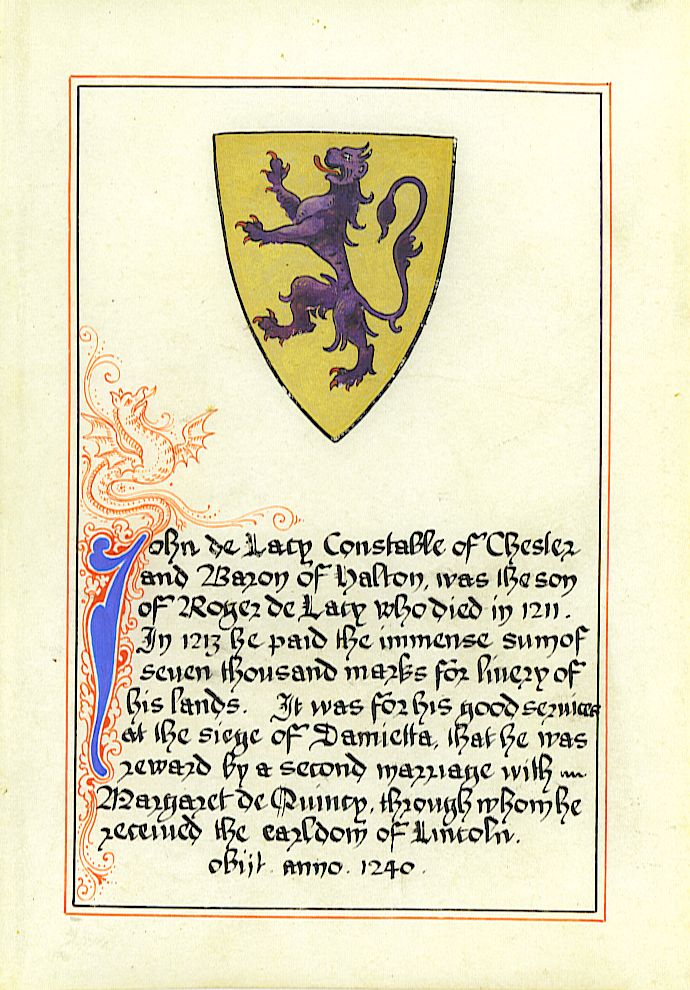 John de Lacy Constable of Chester
and Baron of Halton, was the son
of Roger de Lacy who died in 1211.
In 1213 he paid the immense sum of
seven thousand marks for livery of
his lands. It was for his good services
at the siege of Damietta, that he was
reward by a second marriage with
Margaret de Quincy, through whom he
received the earldom of Lincoln.
obijt. anno. 1240.